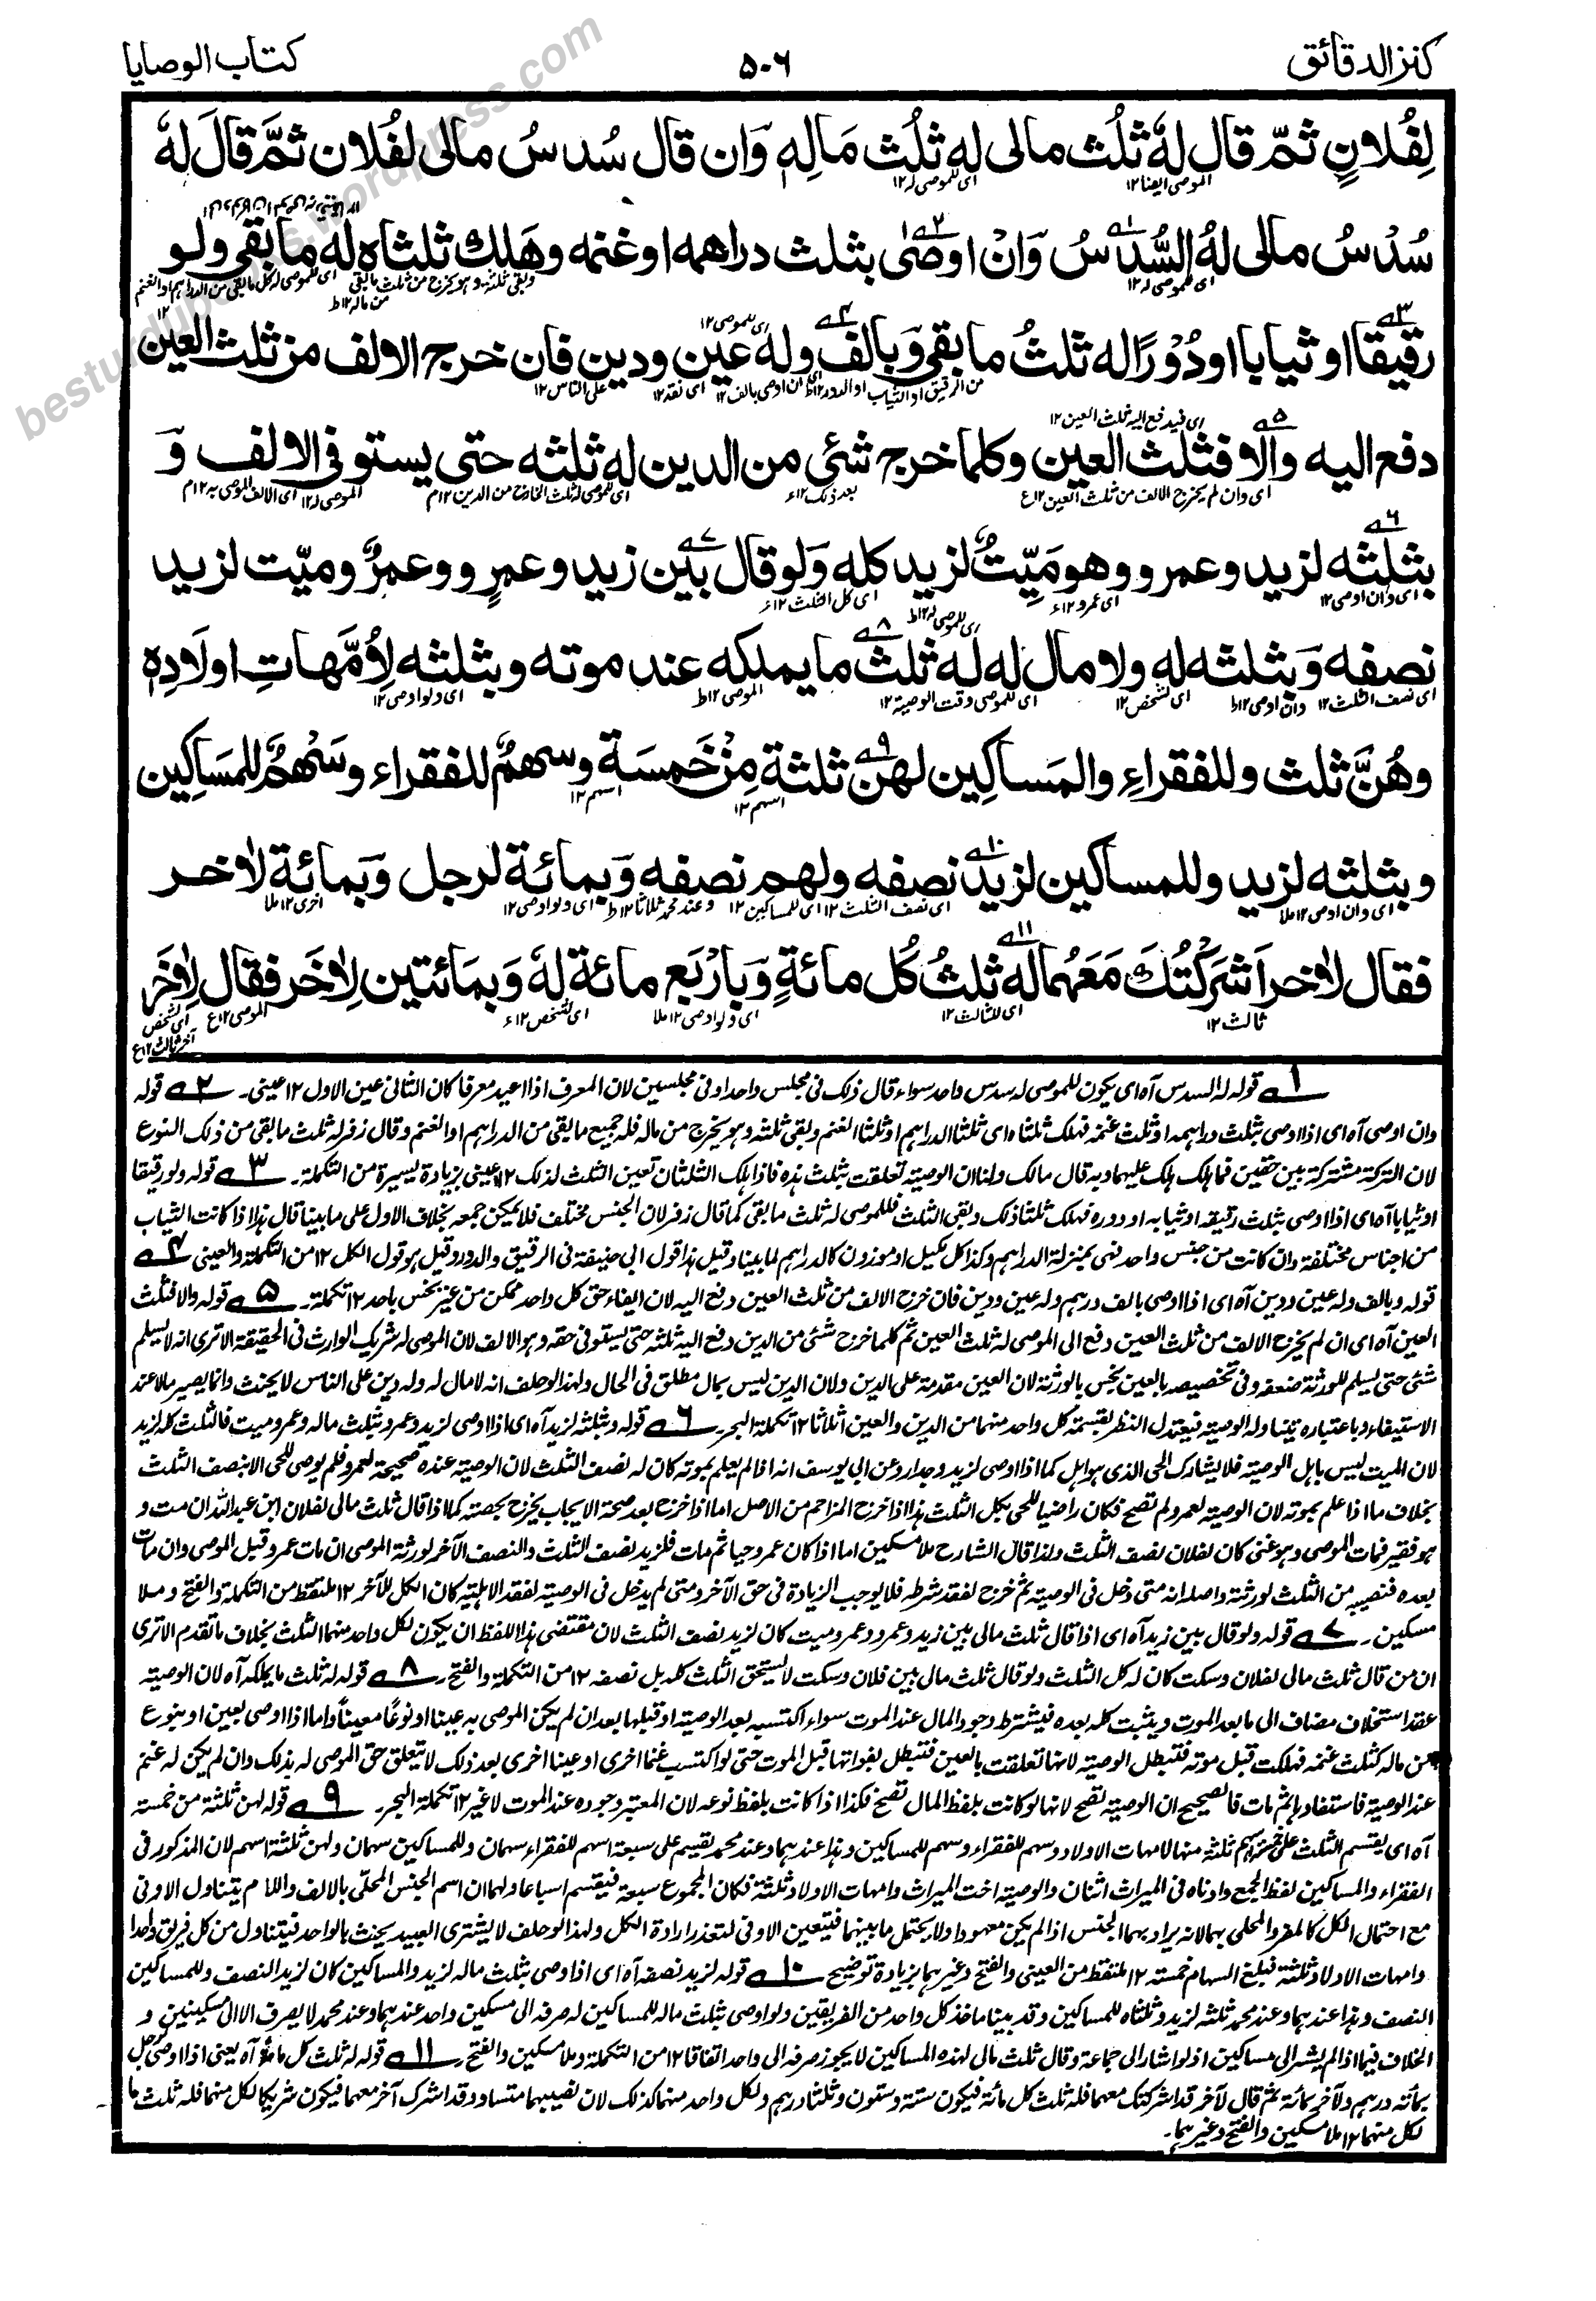 كنز الدقائق
۵۰۶
كتاب الوصايا
لِفُلانٍ ثمّ قال لهٗ ثلُث مالى له ثلُث مَالِهٖ وَان قال سُدسُ مالى لفُلان ثمَّ قالَ لهٗ
الموصى ايضا ١٢
اى للموصى له ١٢
سُدْسُ مالى لهُ السُّدسُ وَانْ اوصٰى بثلث دراهمه اوغنمه وهَلك ثلثاه له مابقى ولو
اى للموصى له ١٢
وبقى ثلثه وهو يخرج من ثلث مابقى من ماله ١٢ط
اى للموصى له كل مابقى من الدراهم اوالغنم ١٢
رقيقا او ثيابا اودُوْرًا له ثلثُ مابقى وَبالف وله عين ودين فان خرج الالف من ثلث العين
اى للموصى ١٢
من الرقيق او الثياب او الدور ١٢ط
اى ان اوصى بالف ١٢
اى نقد ١٢
على الناس ١٢
دفع اليه والا فثلث العين وكلما خرج شئ من الدين له ثلثه حتى يستوفى الالف وَ
اى فيدفع اليه ثلث العين ١٢
اى وان لم يخرج الالف من ثلث العين ١٢ع
بعد ذلك ١٢ء
اى للموصى له ثلث الخارج من الدين ١٢م
الموصى له ١٢
اى الالف الموصى به ١٢م
بثلثه لزيد وعمرو وهو مَيِّتٌ لزيد كله وَلوقال بَين زيد وعمرٍو وعمرٌو ميّت لزيد
اى وان اوصى ١٢
اى عمرو ١٢ء
اى كل الثلث ١٢ء
نصفه وَبثلثه له ولا مال له له ثلث مايملكه عند موته وبثلثه لِاُمَّهاتِ اولادِهٖ
اى للموصى له ١٢ط
اى نصف الثلث ١٢
وان اوصى ١٢ط
اى لشخص ١٢
اى للموصى وقت الوصية ١٢
الموصى ١٢ط
اى ولو اوصى ١٢
وهُنَّ ثلث وللفقراءِ والمَساكِين لهن ثلثة مِنْ خَمسَة وسهمٌ للفقراء وسَهْمٌ للمَساكِين
اسهم ١٢
اسهم ١٢
وبثلثه لزيد وللمساكين لزيد نصفه ولهم نصفه وَبمائة لرجل وَبمائة لاٰخر
اى وان اوصى ١٢ملا
اى نصف الثلث ١٢
اى للمساكين ١٢
وعند محمد ثلاثا ١٢ط
اى ولو اوصى ١٢
اخرى ١٢ملا
فقال لاٰخر اَشرَكتُكَ مَعَهُما له ثلثُ كُل مائةٍ وَبارْبَع مائة لهٗ وَبمَائتين لِاٰخَر فقال لِاٰخَر
ثالث ١٢
اى للثالث ١٢
اى ولو اوصى ١٢ملا
اى لشخص ١٢ء
الموصى ١٢ع
اى لشخص آخر ثالث ١٢ع
١ قوله له السدس آه اى يكون للموصى له سدس واحد سواء قال ذلك فى مجلس واحد او فى مجلسين لان المعرف اذا اعيد معرفا كان الثانى عين الاول ١٢ عينى۔ ٢ قوله
وان اوصى آه اى اذا اوصى بثلث دراهمه او ثلث غنمه فهلك ثلثاه اى ثلثا الدراهم او ثلثا الغنم وبقى ثلثه وهو يخرج من ماله فله جميع مابقى من الدراهم او الغنم وقال زفر له ثلث مابقى من ذلك النوع
لان التركة مشتركة بين حقين فما هلك هلك عليهما وبه قال مالك ولنا ان الوصية تعلقت بثلث هذه فاذا هلك الثلثان تعين الثلث لذلك ١٢ عينى بزيادة يسيرة من التكملة۔ ٣ قوله ولو رقيقا
او ثيابا آه اى اذا اوصى بثلث رقيقه او ثيابه او دوره فهلك ثلثا ذلك وبقى الثلث فللموصى له ثلث مابقى كما قال زفر لان الجنس مختلف فلا يمكن جمعه بخلاف الاول على ما بينا قال هذا اذا كانت الثياب
من اجناس مختلفة وان كانت من جنس واحد فهى بمنزلة الدراهم وكذا كل مكيل او موزون كالدراهم لما بينا وقيل هذا قول ابى حنيفة فى الرقيق والدور وقيل هو قول الكل ١٢ من التكملة والعينى ٤
قوله وبالف وله عين ودين آه اى اذا اوصى بالف درهم وله عين ودين فان خرج الالف من ثلث العين دفع اليه لان ايفاء حق كل واحد ممكن من غير بخس باحد ١٢ تكملة۔ ۵ قوله والا فثلث
العين آه اى ان لم يخرج الالف من ثلث العين دفع الى الموصى له ثلث العين ثم كلما خرج شئ من الدين دفع اليه ثلثه حتى يستوفى حقه وهو الالف لان الموصى له شريك الوارث فى الحقيقة الا ترى انه لا يسلم له
شئ حتى يسلم للورثة ضعفه وفى تخصيصه بالعين بخس بالورثة لان العين مقدمة على الدين ولان الدين ليس بمال مطلق فى الحال ولهذا لو حلف انه لا مال له وله دين على الناس لا يحنث وانما يصير مالا عند
الاستيفاء وباعتباره يتناوله الوصية فيعتدل النظر بقسمة كل واحد منهما من الدين والعين اثلاثا ١٢ تكملة البحر۔ ٦ قوله وبثلثه لزيد آه اى اذا اوصى لزيد وعمرو بثلث ماله وعمرو ميت فالثلث كله لزيد
لان الميت ليس باهل الوصية فلا يشارك الحى الذى هو اهل كما اذا اوصى لزيد وجدار وعن ابى يوسف انه اذا لم يعلم بموته كان له نصف الثلث لان الوصية عنده صحيحة لعمرو فلم يوصى للحى الا بنصف الثلث
بخلاف ما اذا علم بموته لان الوصية لعمرو لم تصح فكان راضيا للحى بكل الثلث هذا اذا خرج المزاحم من الاصل اما اذا خرج بعد صحة الايجاب يخرج بحصته كما اذا قال ثلث مالى لفلان ابن عبدالله ان مت و
هو فقير فمات الموصى وهو غنى كان لفلان نصف الثلث ولذا قال الشارح ملا مسكين اما اذا كان عمرو حيا ثم مات فلزيد نصف الثلث والنصف الآخر لورثة الموصى ان مات عمرو قبل الموصى وان مات
بعده فنصيبه من الثلث لورثته واصله انه متى دخل فى الوصية ثم خرج لفقد شرطه فلا يوجب الزيادة فى حق الآخر ومتى لم يدخل فى الوصية لفقد الاهلية كان الكل للآخر ١٢ ملتقط من التكملة والفتح وملا
مسكين۔ ٧ قوله ولو قال بين زيد آه اى اذا قال ثلث مالى بين زيد وعمرو وعمرو ميت كان لزيد نصف الثلث لان مقتضى هذا اللفظ ان يكون لكل واحد منهما الثلث بخلاف ما تقدم الا ترى
ان من قال ثلث مالى لفلان وسكت كان له كل الثلث ولو قال ثلث مالى بين فلان وسكت لا يستحق الثلث كله بل نصفه ١٢ من التكملة والفتح۔ ٨ قوله له ثلث ما يملكه آه لان الوصية
عقد استخلاف مضاف الى ما بعد الموت ويثبت كله بعده فيشترط وجود المال عند الموت سواء اكتسبه بعد الوصية او قبلها بعد ان لم يكن الموصى به عينا او نوعًا معيناً واما اذا اوصى بعين او بنوع
من ماله كثلث غنمه فهلكت قبل موته فتبطل الوصية لانها تعلقت بالعين فتبطل بفواتها قبل الموت حتى لو اكتسب غنما اخرى او عينا اخرى بعد ذلك لا يتعلق حق الموصى له بذلك وان لم يكن له غنم
عند الوصية فاستفادها ثم مات فالصحيح ان الوصية تصح لانها لو كانت بلفظ المال تصح فكذا اذا كانت بلفظ نوعه لان المعتبر وجوده عند الموت لا غير ١٢ تكملة البحر۔ ٩ قوله لهن ثلثة من خمسة
آه اى يقسم الثلث على خمسة اسهم ثلثة منها لامهات الاولاد وسهم للفقراء وسهم للمساكين وهذا عندهما وعند محمد يقسم على سبعة اسهم للفقراء سهمان وللمساكين سهمان ولهن ثلثة اسهم لان المذكور فى
الفقراء والمساكين لفظ الجمع وادناه فى الميراث اثنان والوصية اخت الميراث وامهات الاولاد ثلثة فكان المجموع سبعة فيقسم اسباعا ولهما ان اسم الجنس المحلّى بالالف واللام يتناول الادنى
مع احتمال الكل كالمفرد المحلى بهما لانه يراد بهما الجنس اذا لم يكن معهودا ولا يحتمل ما بينهما فتعين الادنى لتعذر ارادة الكل ولهذا لو حلف لا يشترى العبيد يحنث بالواحد فيتناول من كل فريق واحدا
وامهات الاولاد ثلثة فبلغ السهام خمسة ١٢ ملتقط من العينى والفتح وغيرهما بزيادة توضيح ١٠ قوله لزيد نصفه آه اى اذا اوصى بثلث ماله لزيد والمساكين كان لزيد النصف وللمساكين
النصف وهذا عندهما وعند محمد ثلثه لزيد وثلثاه للمساكين وقد بينا ماخذ كل واحد من الفريقين ولو اوصى بثلث ماله للمساكين له صرفه الى مسكين واحد عندهما وعند محمد لا يصرف الا الى مسكينين و
الخلاف فيما اذا لم يشر الى مساكين اذ لو اشار الى جماعة وقال ثلث مالى لهذه المساكين لا يجوز صرفه الى واحد اتفاقا ١٢ من التكملة وملا مسكين والفتح۔ ١١ قوله له ثلث كل مائة آه يعنى اذا اوصى لرجل
بمائة درهم ولآخر بمائة ثم قال لآخر قد اشركتك معهما فله ثلث كل مائة فيكون ستة وستون وثلثا درهم ولكل واحد منهما كذلك لان نصيبهما متساو وقد اشرك آخر معهما فيكون شريكا لكل منهما فله ثلث ما
لكل منهما ١٢ ملا مسكين والفتح وغيرهما۔
besturdubooks.wordpress.com